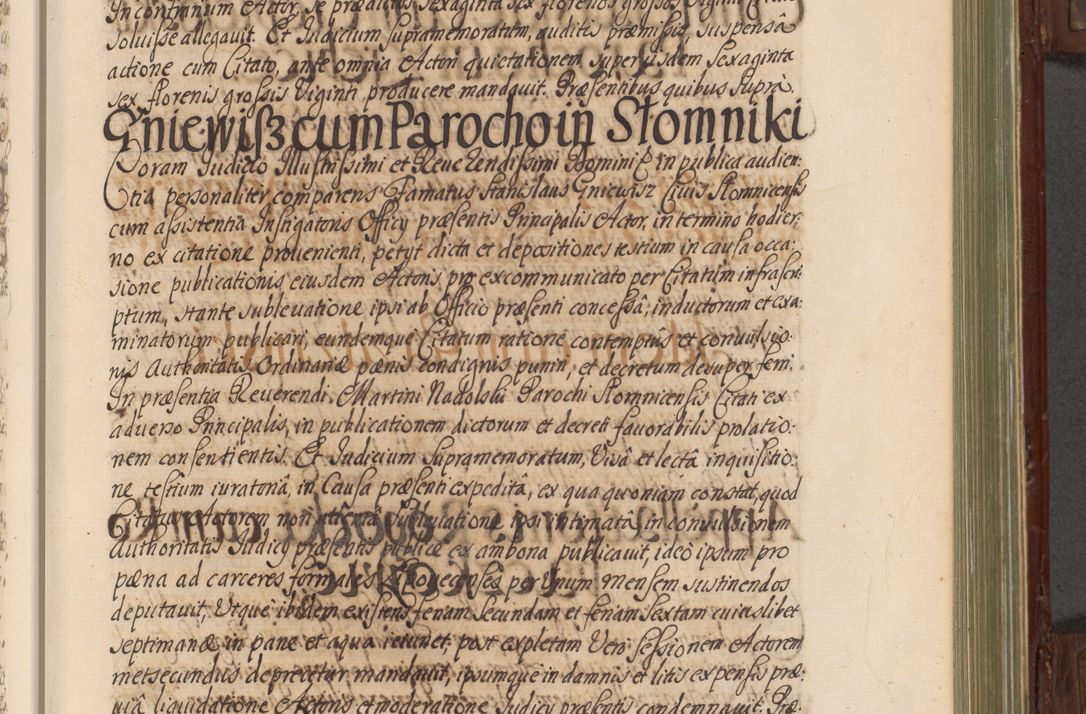 In contrarium Actor, se prædictos sexaginta sex florenos grossos Viginti
soluisse allegauit. Et Iudicium supramemoratum, auditis præmissis, suspensâ
actione cum Citato, ante omnia Actori quietationem super ijsdem sexaginta
sex florenis grossis Viginti producere mandauit. Præsentibus quibus supra.
Gniewisz cum Parocho in Słomniki
Coram Iudicio Illustrissimi et Reuerendissimi Domini in publica audien:
tia personaliter comparens Famatus Stanislaus Gniewisz Ciuis Slomnicensis
cum assistentia Instigatoris Officij præsentis Principalis Actor, in termino hodier:
no ex citatione prouenienti, petijt dicta et depositiones testium in causa occa:
sione publicationis eiusdem Actoris pro excommunicato per Citatum infrascri
ptum, stante subleuatione ipsi ab Officio præsenti concessâ, inductorum et exa:
minatorum publicari, eundemque Citatum ratione contemptus et conuulsio:
nis Authoritatis Ordinariæ pænis condignis puniri, et decretum desuper ferri.
In præsentia Reuerendi Martini Nadolski Parochi Slomnicensis Citati ex
aduerso Principalis, in publicationem dictorum et decreti fauorabilis prolatio:
nem consentientis. Et Iudicium supramemoratum, Visâ et lectâ inquisitio:
ne testium iuratoriâ, in Causa præsenti expeditâ, ex qua quoniam constat, quod
Citatus Actorem non attentâ subleuatione ipsi intimatâ, in conuulsionem
Authoritatis Iudicij præsentis publicè ex ambona publicauit, ideo ipsum pro
pæna ad carceres formales Lipouecenses per Vnum mensem sustinendos
deputauit, Vtque ibidem existens feriam secundam et feriam sextam cuiuslibet
septimanæ in pane et aqua ieiunet, post expletam Vero sessionem Actorem
metsecundus deprecetur mandauit, ipsumque in damnis et litis expensis præ:
uiâ liquidatione Actoris et moderatione Iudicij præsentis condemnauit. Præ: